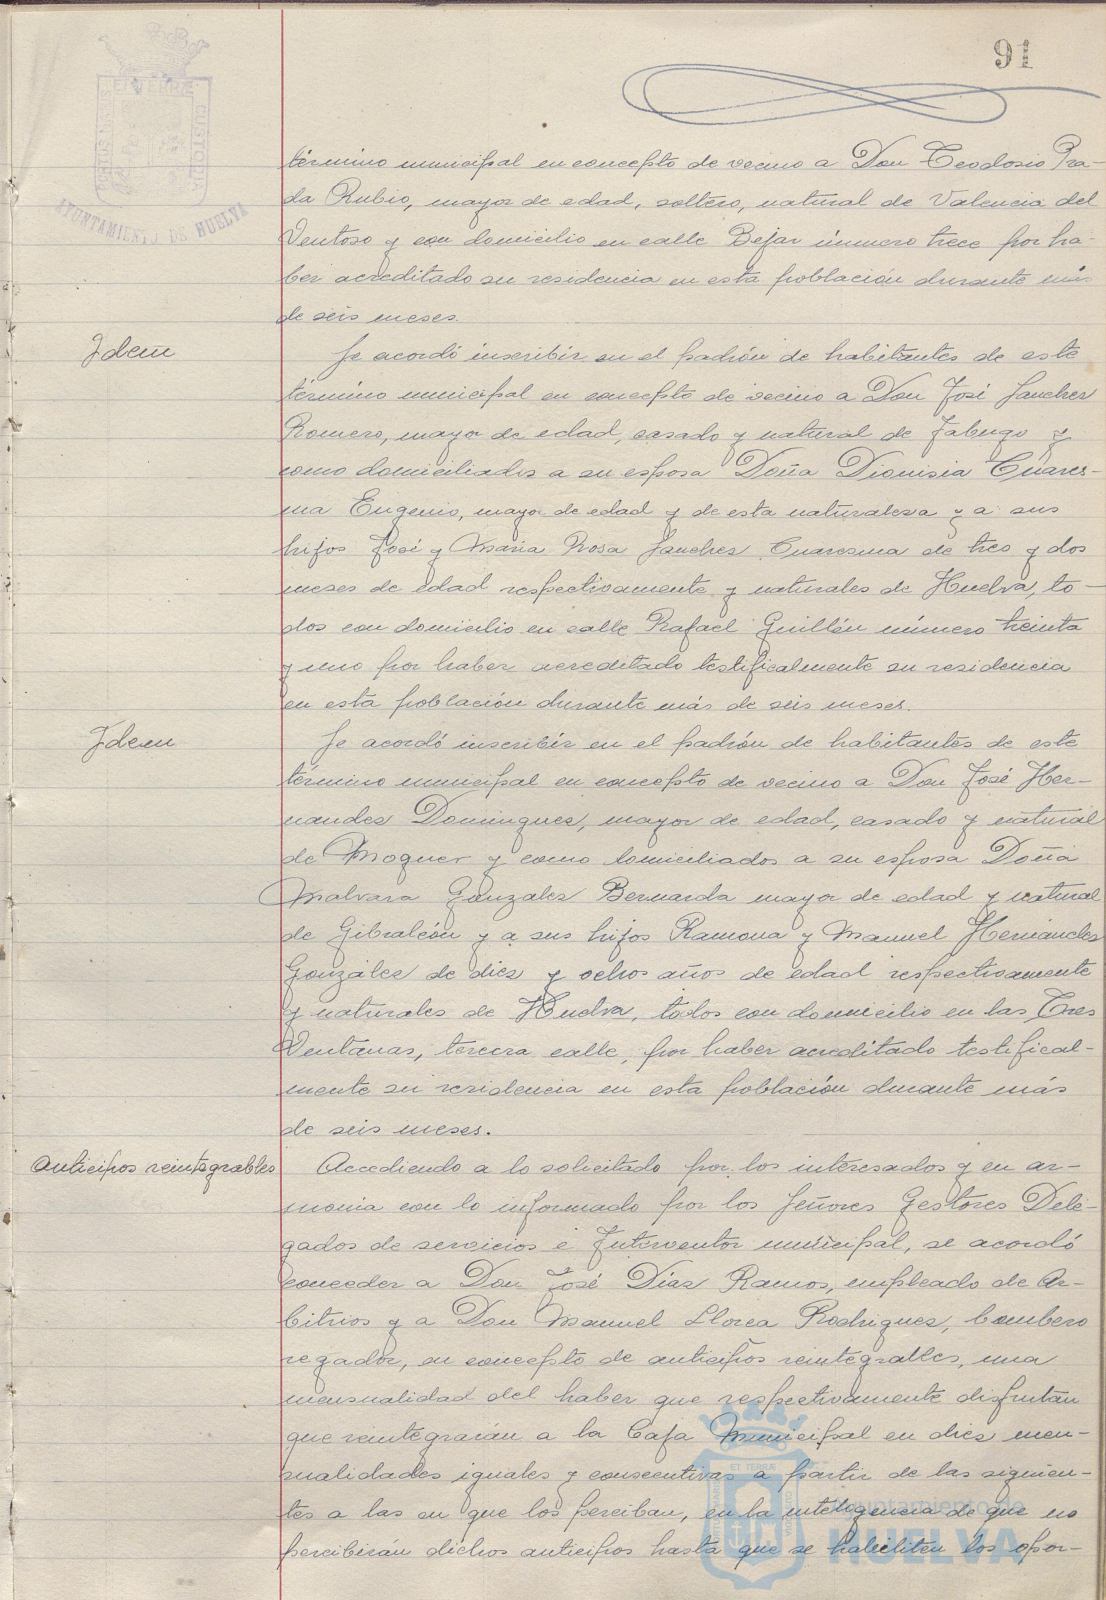 91
ET TERRÆ
CUSTODIA
AYUNTAMIENTO DE HUELVA
término municipal en concepto de vecino a Don Teodosio Pra-
da Rubio, mayor de edad, soltero, natural de Valencia del
Ventoso y con domicilio en calle Bejar número trece por ha-
ber acreditado su residencia en esta población durante más
de seis meses.
Idem
Se acordó inscribir en el padrón de habitantes de este
término municipal en concepto de vecino a Don José Sanchez
Romero, mayor de edad, casado y natural de Jabugo y
como domiciliados a su esposa Doña Dionisia Cuares-
ma Eugenio, mayor de edad y de esta naturaleza y a sus
hijos José y Maria Rosa Sanchez Cuaresma de tres y dos
meses de edad respectivamente y naturales de Huelva, to-
dos con domicilio en calle Rafael Guillén número treinta
y uno por haber acreditado testificalmente su residencia
en esta población durante más de seis meses.
Idem
Se acordó inscribir en el padrón de habitantes de este
término municipal en concepto de vecino a Don José Her-
nandez Dominguez, mayor de edad, casado y natural
de Moguer y como domiciliados a su esposa Doña
Malvara Gonzalez Bernarda mayor de edad y natural
de Gibraleón y a sus hijos Ramona y Manuel Hernandez
González de diez y ochos años de edad respectivamente
y naturales de Huelva, todos con domicilio en las Tres
Ventanas, tercera calle, por haber acreditado testifical-
mente su residencia en esta población durante más
de seis meses.
Anticipos reintegrables
Accediendo a lo solicitado por los interesados y en ar-
monia con lo informado por los Señores Gestores Dele-
gados de servicios e Interventor municipal, se acordó
conceder a Don José Díaz Ramos, empleado de Ar-
bitrios y a Don Manuel Llorca Rodriguez, bombero
regador, en concepto de anticipos reintegrables, una
mensualidad del haber que respectivamente disfrutan
que reintegrarán a la Caja Municipal en diez men-
sualidades iguales y consecutivas a partir de las siguien-
tes a las en que los perciban, en la inteligencia de que no
percibirán dichos anticipos hasta que se habiliten los opor-
Ayuntamiento de
HUELVA